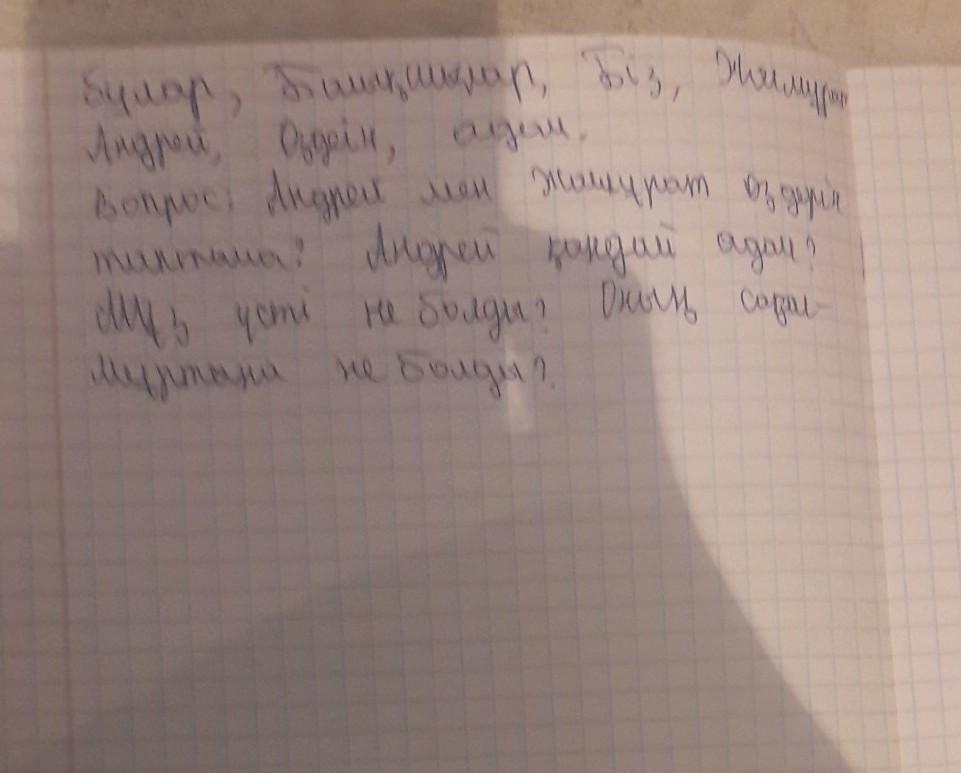 Бұлар, Балықшылар, Біз, Жалмұрат
Андрей, Өздерін, адам.
Вопрос: Андрей мен Жалмұрат өздерін
тыктама? Андрей қандай адам?
Мұз үсті не болды? Оның сақал-
мұртына не болды?